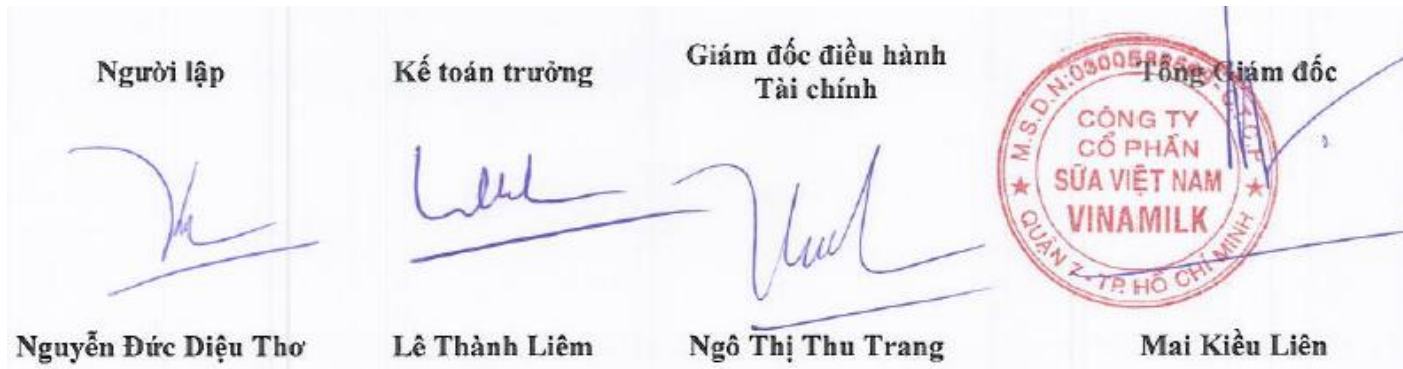 Người lập
Kế toán trưởng
Giám đốc điều hành
Tài chính
Tổng Giám đốc
CÔNG TY
CỔ PHẦN
SỮA VIỆT NAM
VINAMILK
QUẬN 7 - TP. HỒ CHÍ MINH
Nguyễn Đức Diệu Thơ
Lê Thành Liêm
Ngô Thị Thu Trang
Mai Kiều Liên